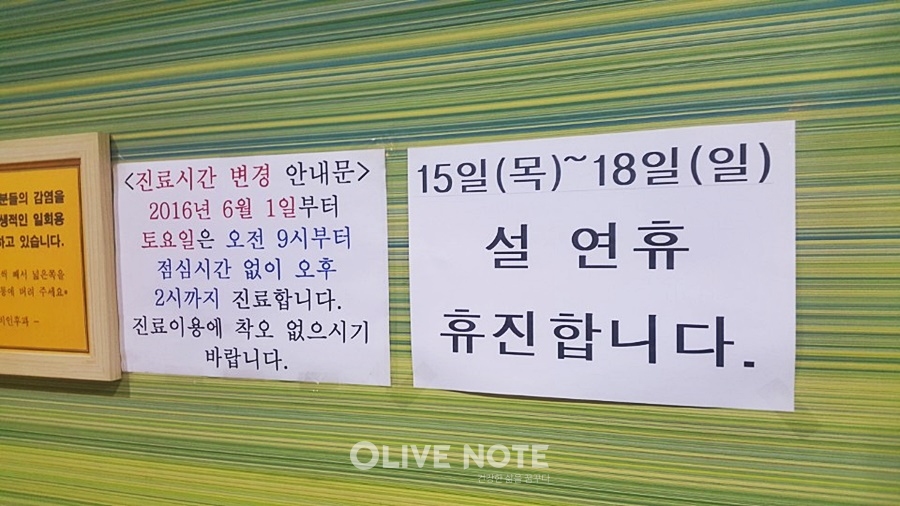 분들의 감염을
생적인 일회용
하고 있습니다.
혀 빼서 넓은쪽을
통에 버려 주세요*
비인후과 -
<진료시간 변경 안내문>
2016년 6월 1일부터
토요일은 오전 9시부터
점심시간 없이 오후
2시까지 진료합니다.
진료이용에 착오 없으시기
바랍니다.
15일(목)~18일(일)
설 연휴
휴진합니다.
OLIVE NOTE
건강한 삶을 꿈꾸다